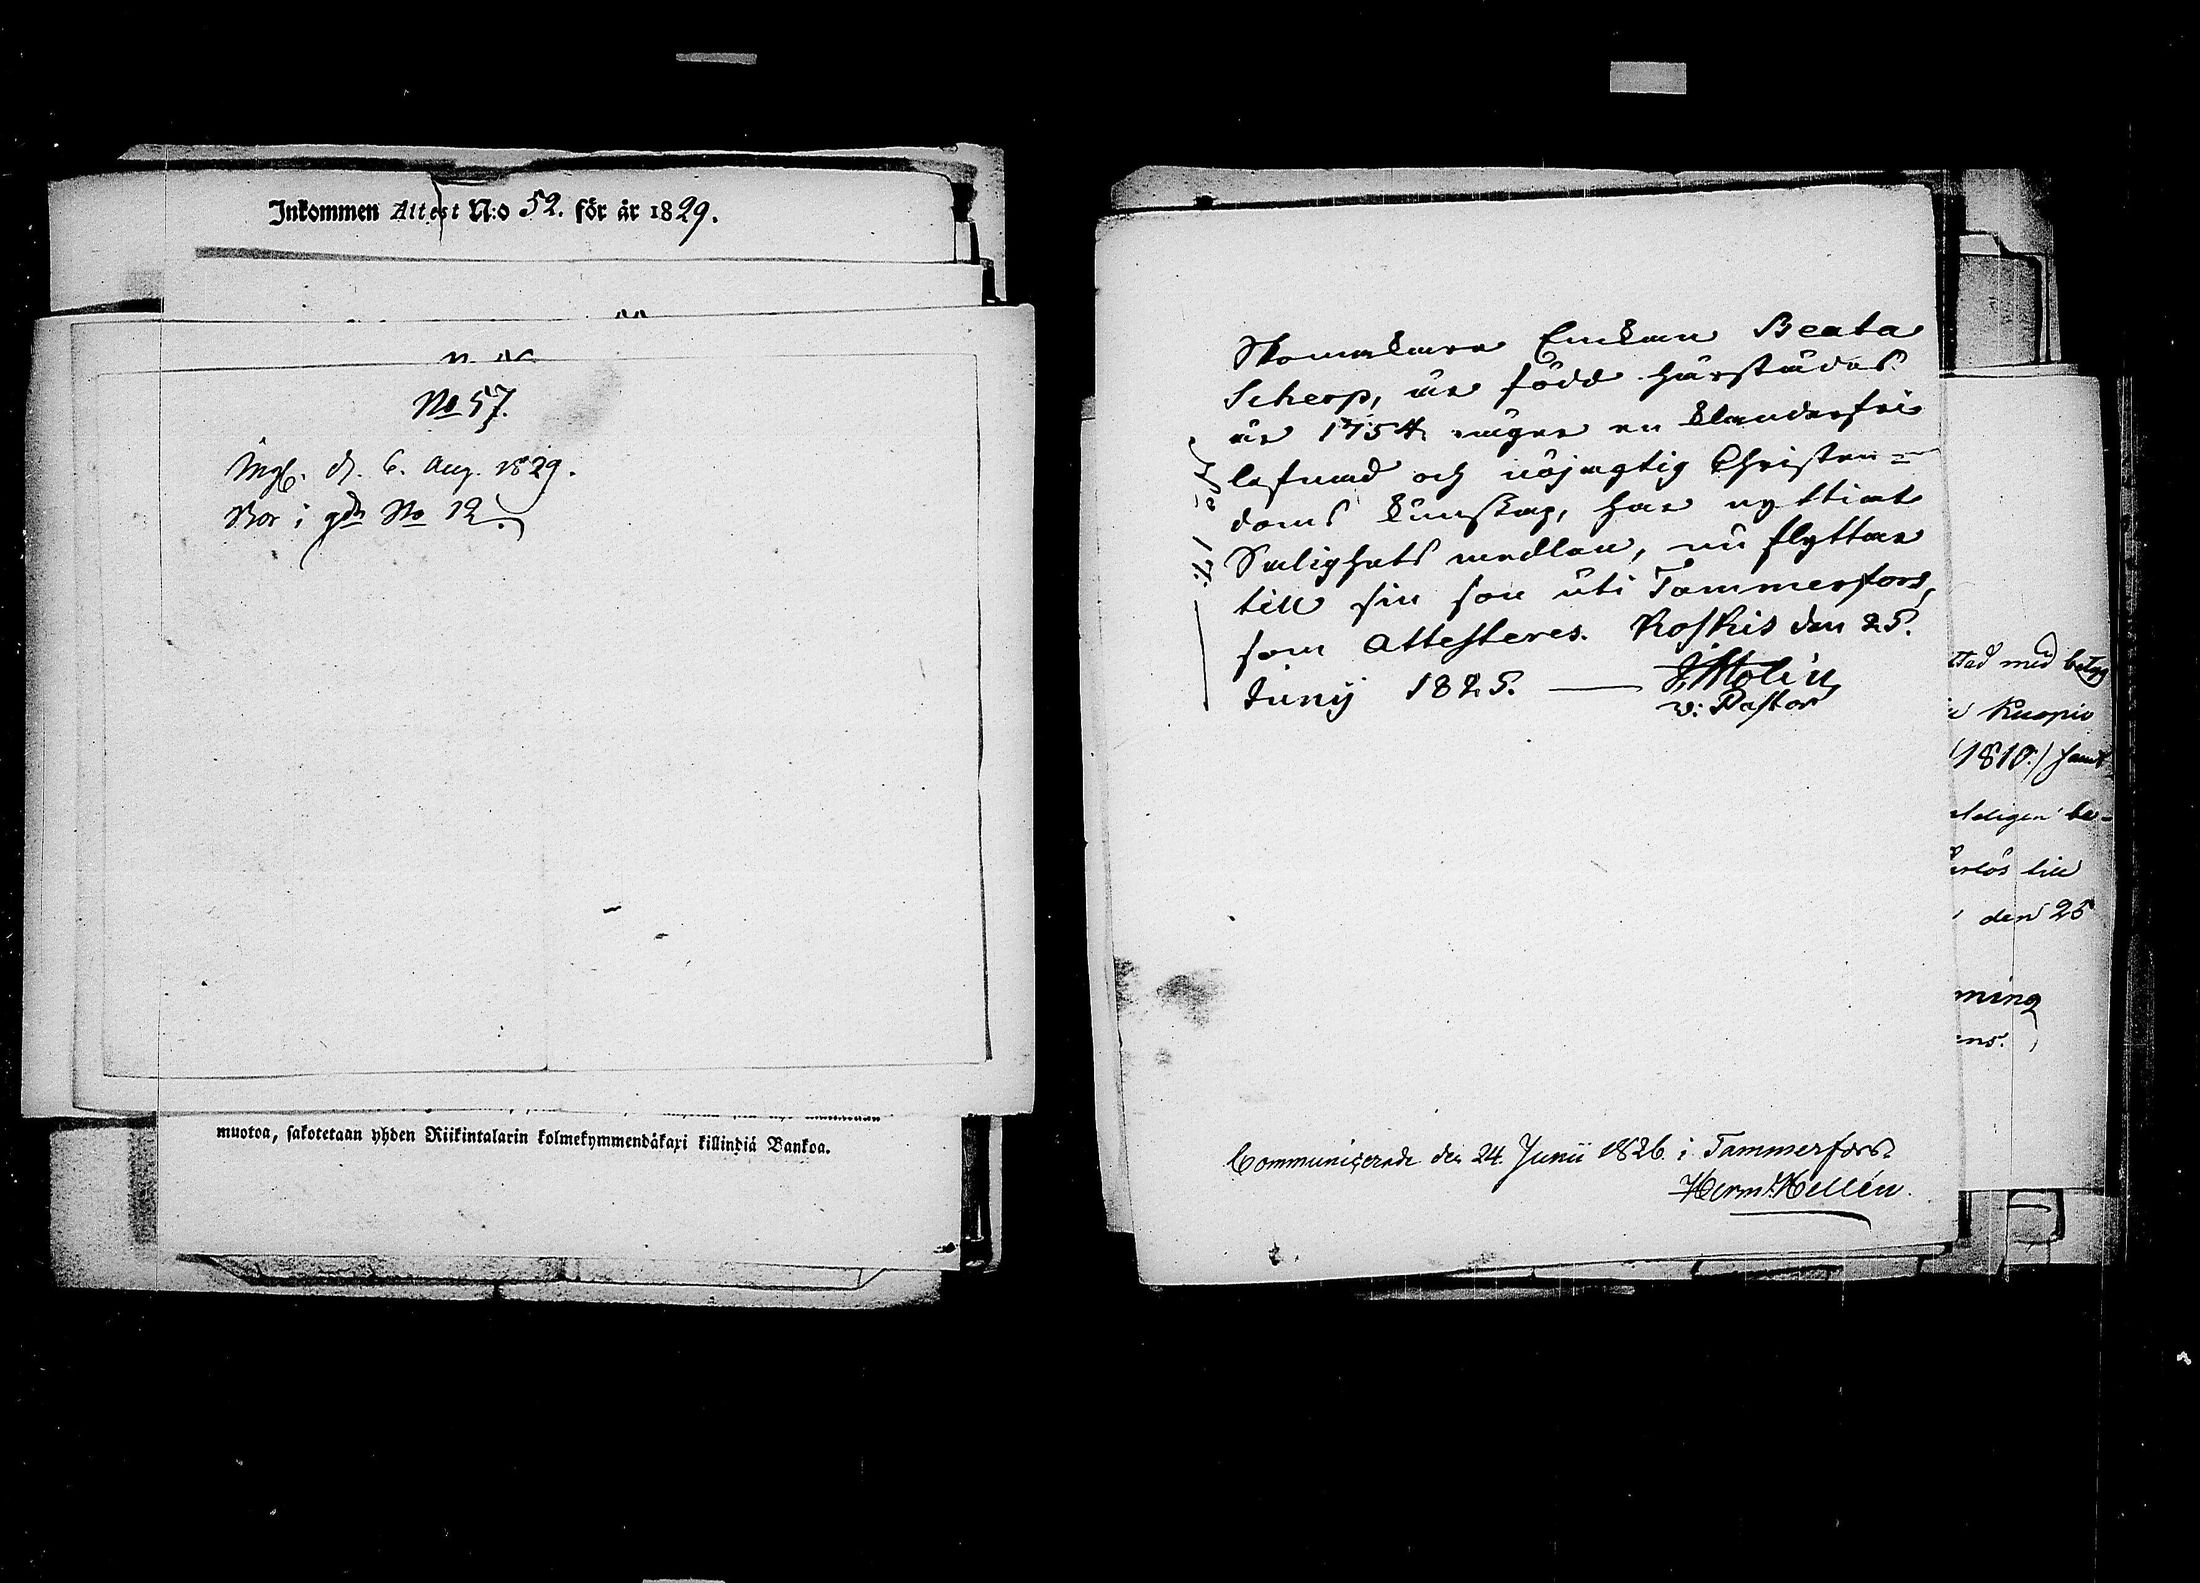 Inkommen Attest N:o 52. för år 1829.
No 57.
Ingb. d. 6. Aug. 1829.
Bor i gdn No 12.
muotoa, sakotetaan yhden Riikintalarin kolmekymmendäkaxi killindiä Bankoa.
Skomakare Enkan Beata
Scherp, är född härstädes
år 1754, äger en klanderfri
lefnad och nöjagtig Christen=
doms kunskap, har nyttiat
Salighets medlen, nu flyttar
till sin son uti Tammerfors,
som Attesteres. Koskis den 25.
Junij 1825. — J. Molin
v: Pastor
Communicerade den 24. Junii 1826. i Tammerfors.
Herm. Hellén.
stad med betyg
Kuopio
(1810.) samt
be-
till
den 25